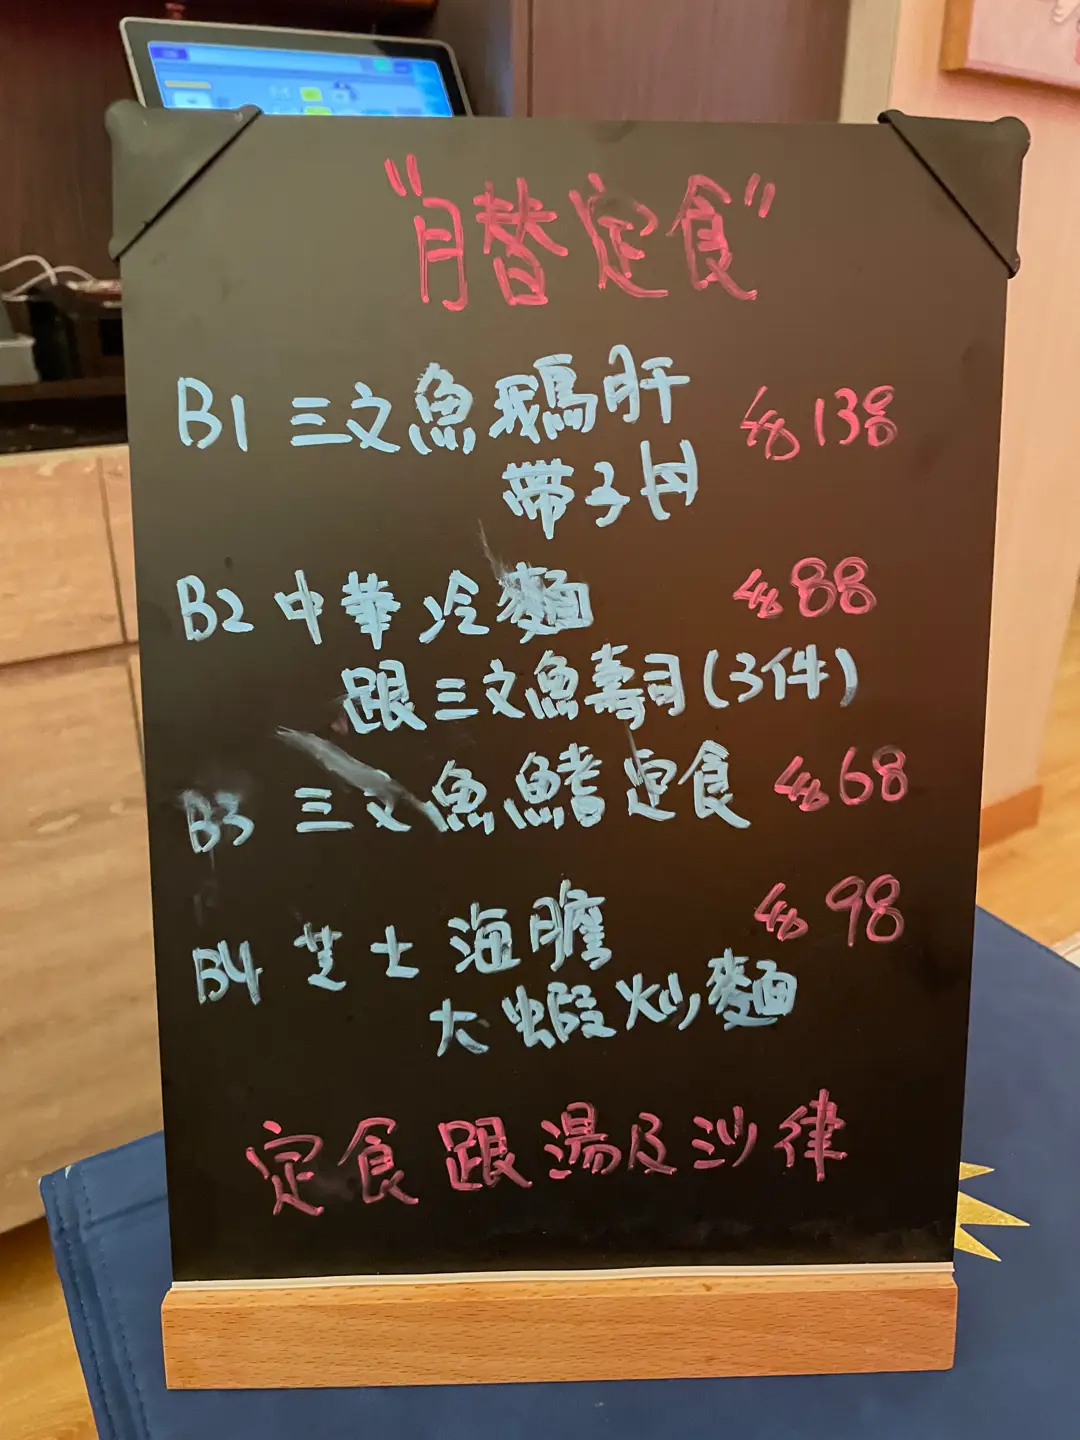 "月替定食"
B1 三文魚鵝肝 $138
帶子丼
B2 中華冷麵 $88
跟三文魚壽司(3件)
B3 三文魚鰭定食 $68
B4 芝士海膽 $98
大蝦炒麵
定食跟湯及沙律